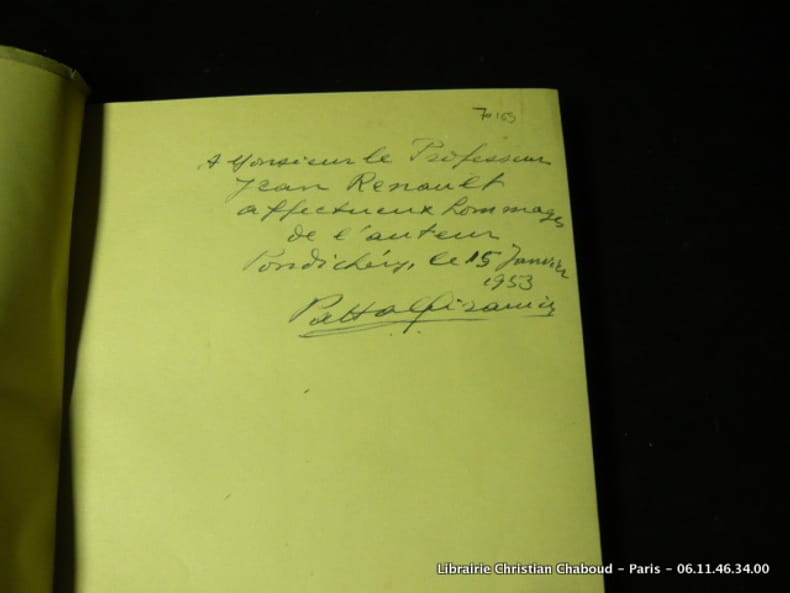 A Monsieur le Professeur
Jean Renault
affectueux hommages
de l'auteur
Pondichéry, le 15 Janvier
1953
Librairie Christian Chaboud - Paris - 06.11.46.34.00